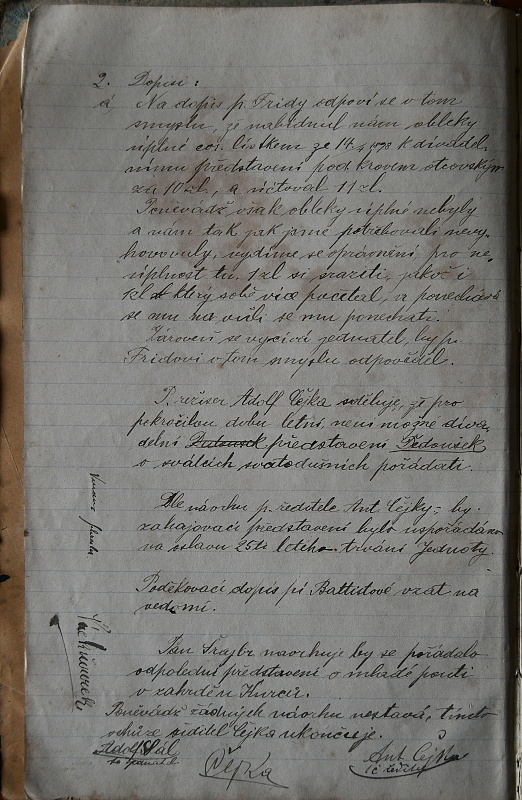 2. Dopisi:
á Na dopis p. Fridy odpoví se v tom
smyslu, že nabídnul nám obleky
úplné coś. lístkem ze 14. 1898 k divadel.
nímu představení pod krovem otcovským
za 10 zl., a účtoval 11 zl.
Poněvádž však obleky úplné nebyly
a nám tak jak jsme potřebovali nevy-
hovovaly, vidíme se oprávněni, pro ne,
úplnost tu, 1 zl si sraziti, jakož i
1 zl který sobě více počítal, a
se mu na vůli se mu ponechati.
Zároveň se vyzívá jednatel, by p.
Fridovi v tom smyslu odpověděl.
P. režiser Adolf Čejka sděluje, že pro
pokročilou dobu letní, není možné diva,
delní představení Pedoušek
o svátcích svatodušních pořádati.
Dle návrhu p. ředitele Ant. Čejky, by
zahajovací představení bylo uspořádáno
na oslavu 25ti letého trvání Jednoty.
Poděkovací dopis pí Battistové vzat na
vědomí.
Pan Šrajbr navrhuje by se pořádalo
odpolední představení o mladé pouti
v zahradě
Poněvádž žádných návrhu nestává, tímto
schůze řiditel Čejka ukončuje.
Adolf Král
t. č. jednatel
Čejka
Ant. Čejka
t. č. ředitel